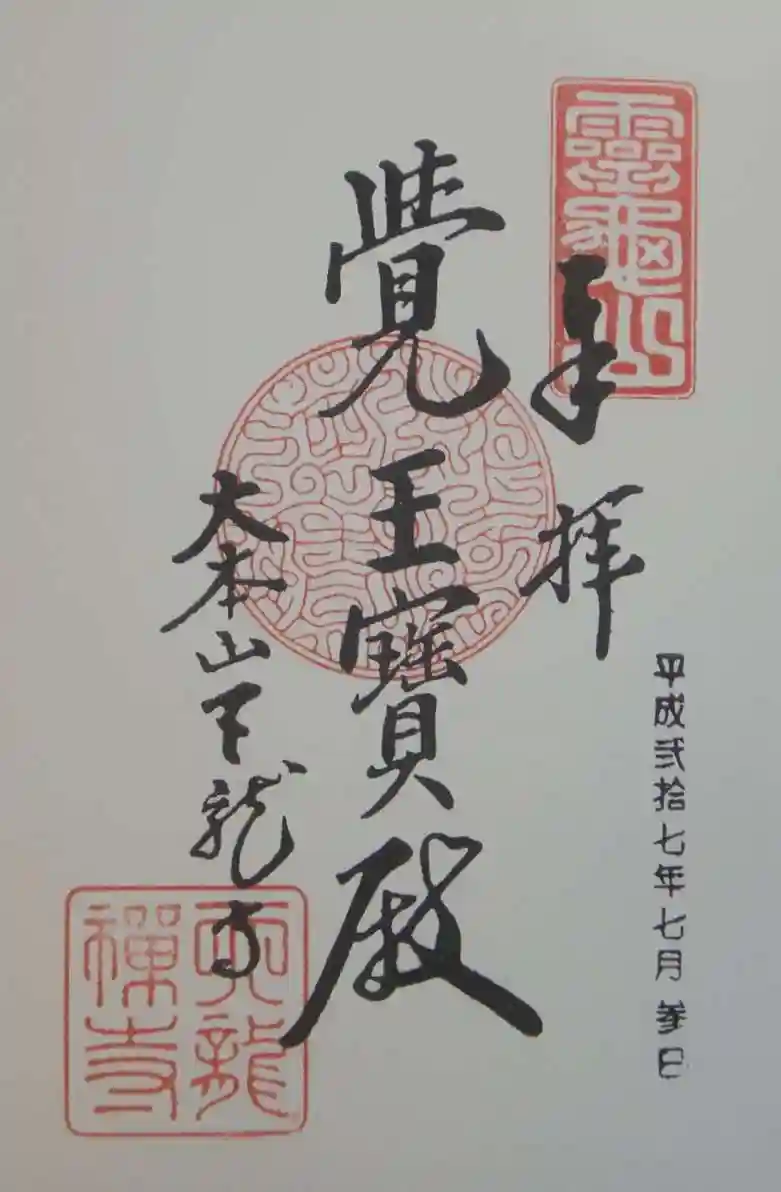 奉拝
平成弐拾七年七月参日
覺王寳殿
大本山天龍寺
靈龜山
天龍禅寺